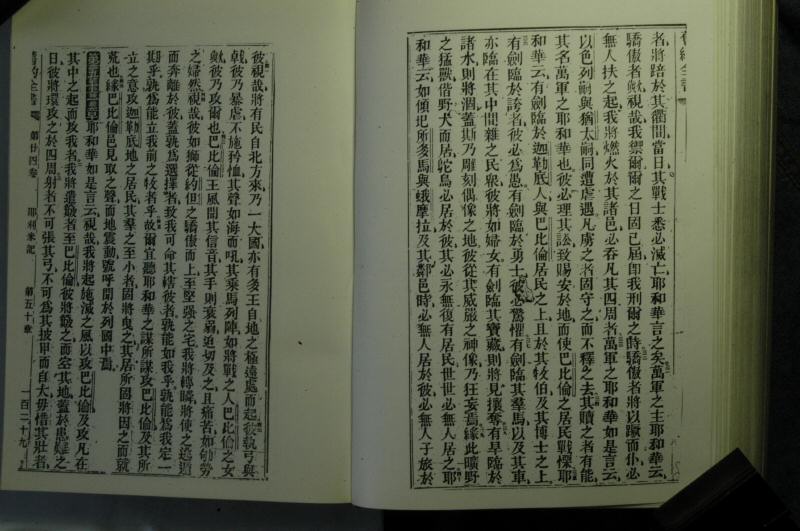 舊約全書
者將踣於其衢間當日其戰士悉必滅亡耶和華言之矣萬軍之主耶和華云
驕傲者歟視哉我禦爾爾之日固已屆即我刑爾之時驕傲者將以蹶而仆必
無人扶之起我將燃火於其諸邑必吞凡其四周者萬軍之耶和華如是言云
以色列嗣與猶大嗣同遭虐遇凡虜之者固守之而不釋之去其贖之者有能
其名萬軍之耶和華也彼必理其訟致賜安於地而使巴比倫之居民戰慄耶
和華云有劍臨於迦勒底人與巴比倫居民之上且於其牧伯及其博士之上
有劍臨於誇者彼必為愚有劍臨於勇士彼必驚懼有劍臨其羣馬以及其車
亦臨在其中間雜之民衆彼將如婦女有劍臨其寶藏則將見攘奪有旱臨於
諸水則將涸蓋斯乃雕刻偶像之地彼從其威嚴之神像乃狂妄焉緣此曠野
之猛獸偕野犬而居鴕鳥必居於彼其必永無復有居民世世必無人居之耶
和華云如傾圯所多馬與蛾摩拉及其鄰邑時必無人居於彼必無人子旅於
彼視哉將有民自北方來乃一大國亦有多王自地之極遠處而起彼執弓與
戟彼乃暴虐不施矜恤其聲如海而吼其乘馬列陣如將戰之人巴比倫之女
歟彼乃攻爾也巴比倫王風聞其信音其手則衰弱迫切及之且痛苦如劬勞
之婦然視哉彼如獅從約但之驕傲而上至堅强之宅我將轉瞬將使之逃遁
而奔離於彼蓋孰為選擇者致我可命其轄彼者孰能如我乎孰能為我定一
期乎孰為能立我前之牧者乎故爾宜聽耶和華之謀所謀攻巴比倫及其所
立之意攻迦勒底地之居民其羣之至小者固將曳之其居所固將因之而就
荒也緣巴比倫邑見取之聲而地震動號呼聞於列國中焉
耶和華如是言云視哉我將起施滅之風以攻巴比倫及攻凡在
其中之起而攻我者我將遣簸者至巴比倫彼將簸之而空其地蓋於患難之
日彼將環攻之於四周射者不可張其弓不可為其披甲而自大毋惜其壯者
舊約全書 第廿四卷 耶利米記 第五十章 一百二十九